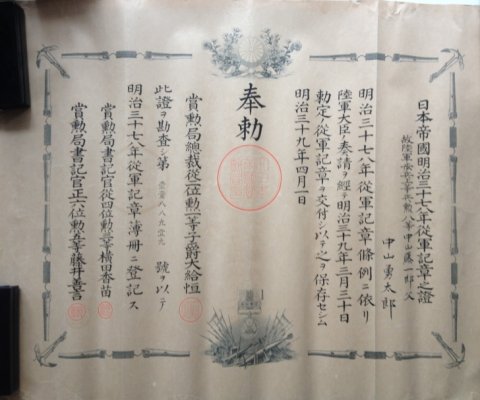 日本帝國明治三十七八年從軍記章之證
故陸軍歩兵一等卒勲八等中山藤一郎父
中山勇太郎
明治三十七八年從軍記章條例ニ依リ
陸軍大臣ノ奏請ヲ經テ明治三十九年三月三十日
勅定ノ從軍記章ヲ交付シ以テ之ヲ保存セシム
明治三十九年四月一日
奉勅
賞勲局總裁從二位勲一等子爵大給恒
此證ヲ勘査シ第
號ヲ以テ
明治三十七八年從軍記章簿冊ニ登記ス
賞勲局書記官從四位勲三等横田香苗
賞勲局書記官正六位勲五等藤井善言